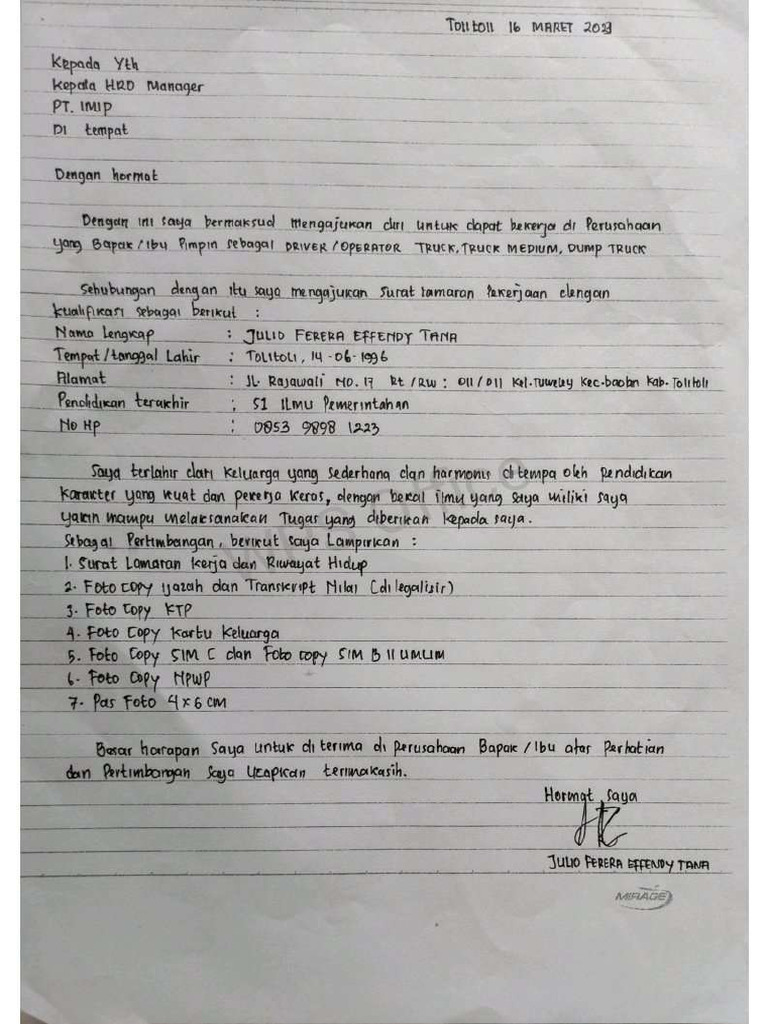 Tolitoli 16 MARET 2023
Kepada Yth
Kepala HRD Manager
PT. IMIP
Di tempat
Dengan hormat
Dengan ini saya bermaksud mengajukan diri untuk dapat bekerja di Perusahaan
yang Bapak/Ibu Pimpin sebagai DRIVER/OPERATOR TRUCK, TRUCK MEDIUM, DUMP TRUCK
Sehubungan dengan itu saya mengajukan surat lamaran Pekerjaan dengan
kualifikasi sebagai berikut :
Nama Lengkap : JULIO FERERA EFFENDY TANA
Tempat/tanggal Lahir : TOLITOLI, 14-06-1996
Alamat : Jl. Rajawali NO.17 Rt/Rw : 011/011 Kel.Tuweley Kec-baolan Kab. Tolitoli
Pendidikan terakhir : S1 Ilmu Pemerintahan
No HP : 0853 9898 1223
Saya terlahir dari keluarga yang sederhana dan harmonis ditempa oleh pendidikan
karakter yang kuat dan pekerja keras, dengan bekal ilmu yang saya miliki saya
yakin mampu melaksanakan Tugas yang diberikan kepada saya.
Sebagai Pertimbangan, berikut saya Lampirkan :
1. Surat Lamaran kerja dan Riwayat Hidup
2. Foto copy ijazah dan Transkript Nilai (dilegalisir)
3. Foto Copy KTP
4. Foto Copy Kartu Keluarga
5. Foto Copy SIM C dan Foto copy SIM B II UMUM
6. Foto Copy NPWP
7. Pas Foto 4x6 cm
Besar harapan Saya untuk di terima di perusahaan Bapak/Ibu atas Perhatian
dan Pertimbangan saya Ucapkan terimakasih.
Hormat saya
JULIO FERERA EFFENDY TANA
MIRAGE